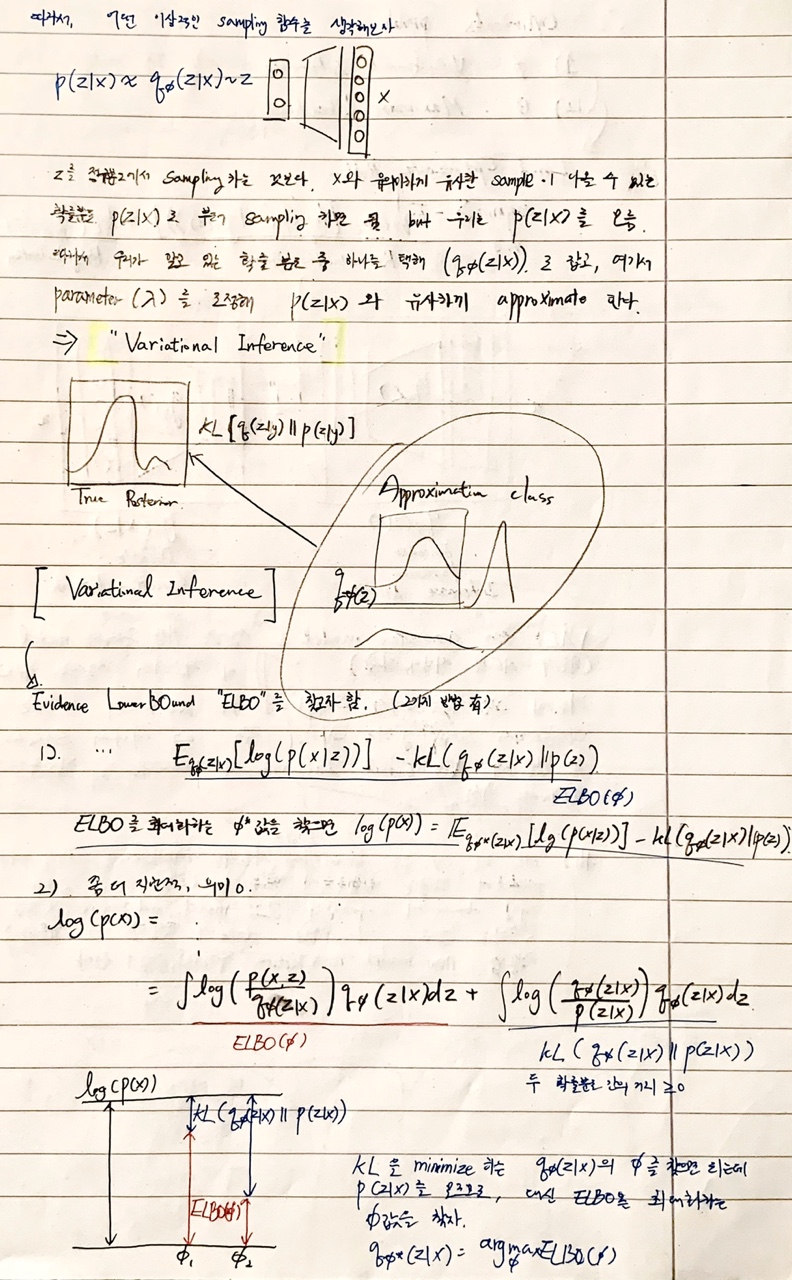 따라서, 어떤 이상적인 sampling 함수를 생각해보자
p(z|x) ≈ qϕ(z|x) ~ z
x
z를 에서 sampling 하는 것보다. x와 유사하게 유사한 sample이 나올 수 있는
확률분포 p(z|x)로 부터 sampling 하면 됨 but 우리는 p(z|x)를 모름
따라서 우리가 알고 있는 확률 분포 중 하나를 택해 (qϕ(z|x)). 로 잡고, 여기서
parameter (λ)를 조정해 p(z|x)와 유사하게 approximate 한다.
⇒ ["Variational Inference"]
KL[q(z|y) || p(z|y)]
True Posterior.
Approximation class
qϕ(z)
[Variatinal Inference]
Evidence LowerBOund "ELBO"를 찾고자 함. (2가지 방법 有)
1). ... E_{qϕ(z|x)}[log(p(x|z))] - KL(qϕ(z|x) || p(z))
ELBO(ϕ)
ELBO를 최대화하는 ϕ* 값을 찾으면 log(p(x)) = E_{qϕ*(z|x)}[log(p(x|z))] - KL(qϕ(z|x) || p(z))
2) 좀 더 직관적, 의미 o.
log(p(x)) =
⋮
= ∫log(p(x,z)/qϕ(z|x)) qϕ(z|x)dz + ∫log(qϕ(z|x)/p(z|x)) qϕ(z|x)dz
ELBO(ϕ)
KL(qϕ(z|x) || p(z|x))
두 확률분포 간의 거리 ≥0
log(p(x))
KL(qϕ(z|x) || p(z|x))
ELBO(ϕ)
ϕ₁ ϕ₂
KL을 minimize 하는 qϕ(z|x)의 ϕ를 찾으면 되는데
p(z|x)를 모르므로, 대신 ELBO를 최대화하는
ϕ값을 찾자.
qϕ*(z|x) = argmax_ϕ ELBO(ϕ)